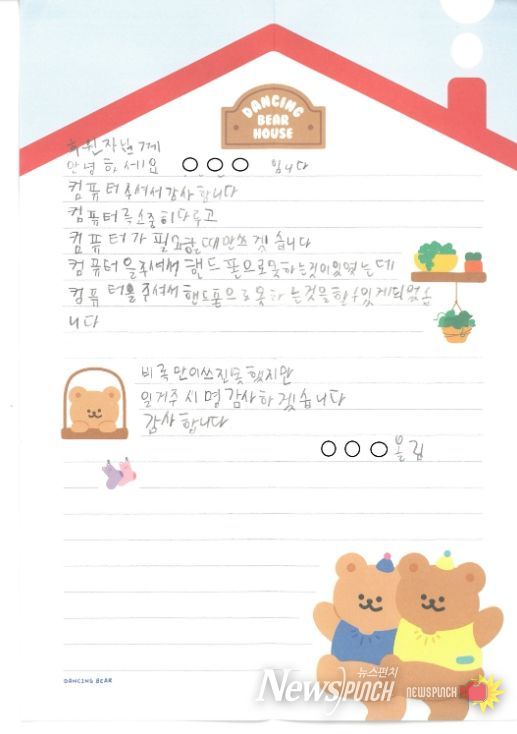 DANCING
BEAR
HOUSE
후원자님께
안녕하세요 ○○○ 입니다
컴퓨터주셔서감사합니다
컴퓨터를소중히다루고
컴퓨터가 필요할때만쓰겟습니다
컴퓨터을주셔서 핸드폰으로못하는것이있었는데
컴퓨터를주셔서핸드폰으로못하는것을할수있게되었습
니다
비록많이쓰진못했지만
일거주시명감사하겠습니다
감사합니다
○○○올림
DANCING BEAR
뉴스펀치
NEWSPUNCH NEWSPUNCH